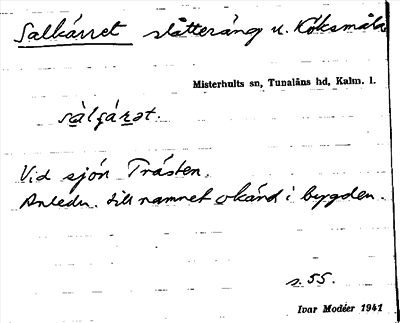 Salkärret slåtteräng u. Köksmåla
Misterhults sn, Tunaläns hd, Kalm. l.
sàlgárət.
Vid sjön Trästen.
Anledn. till namnet okänd i bygden.
s. 55.
Ivar Modéer 1941